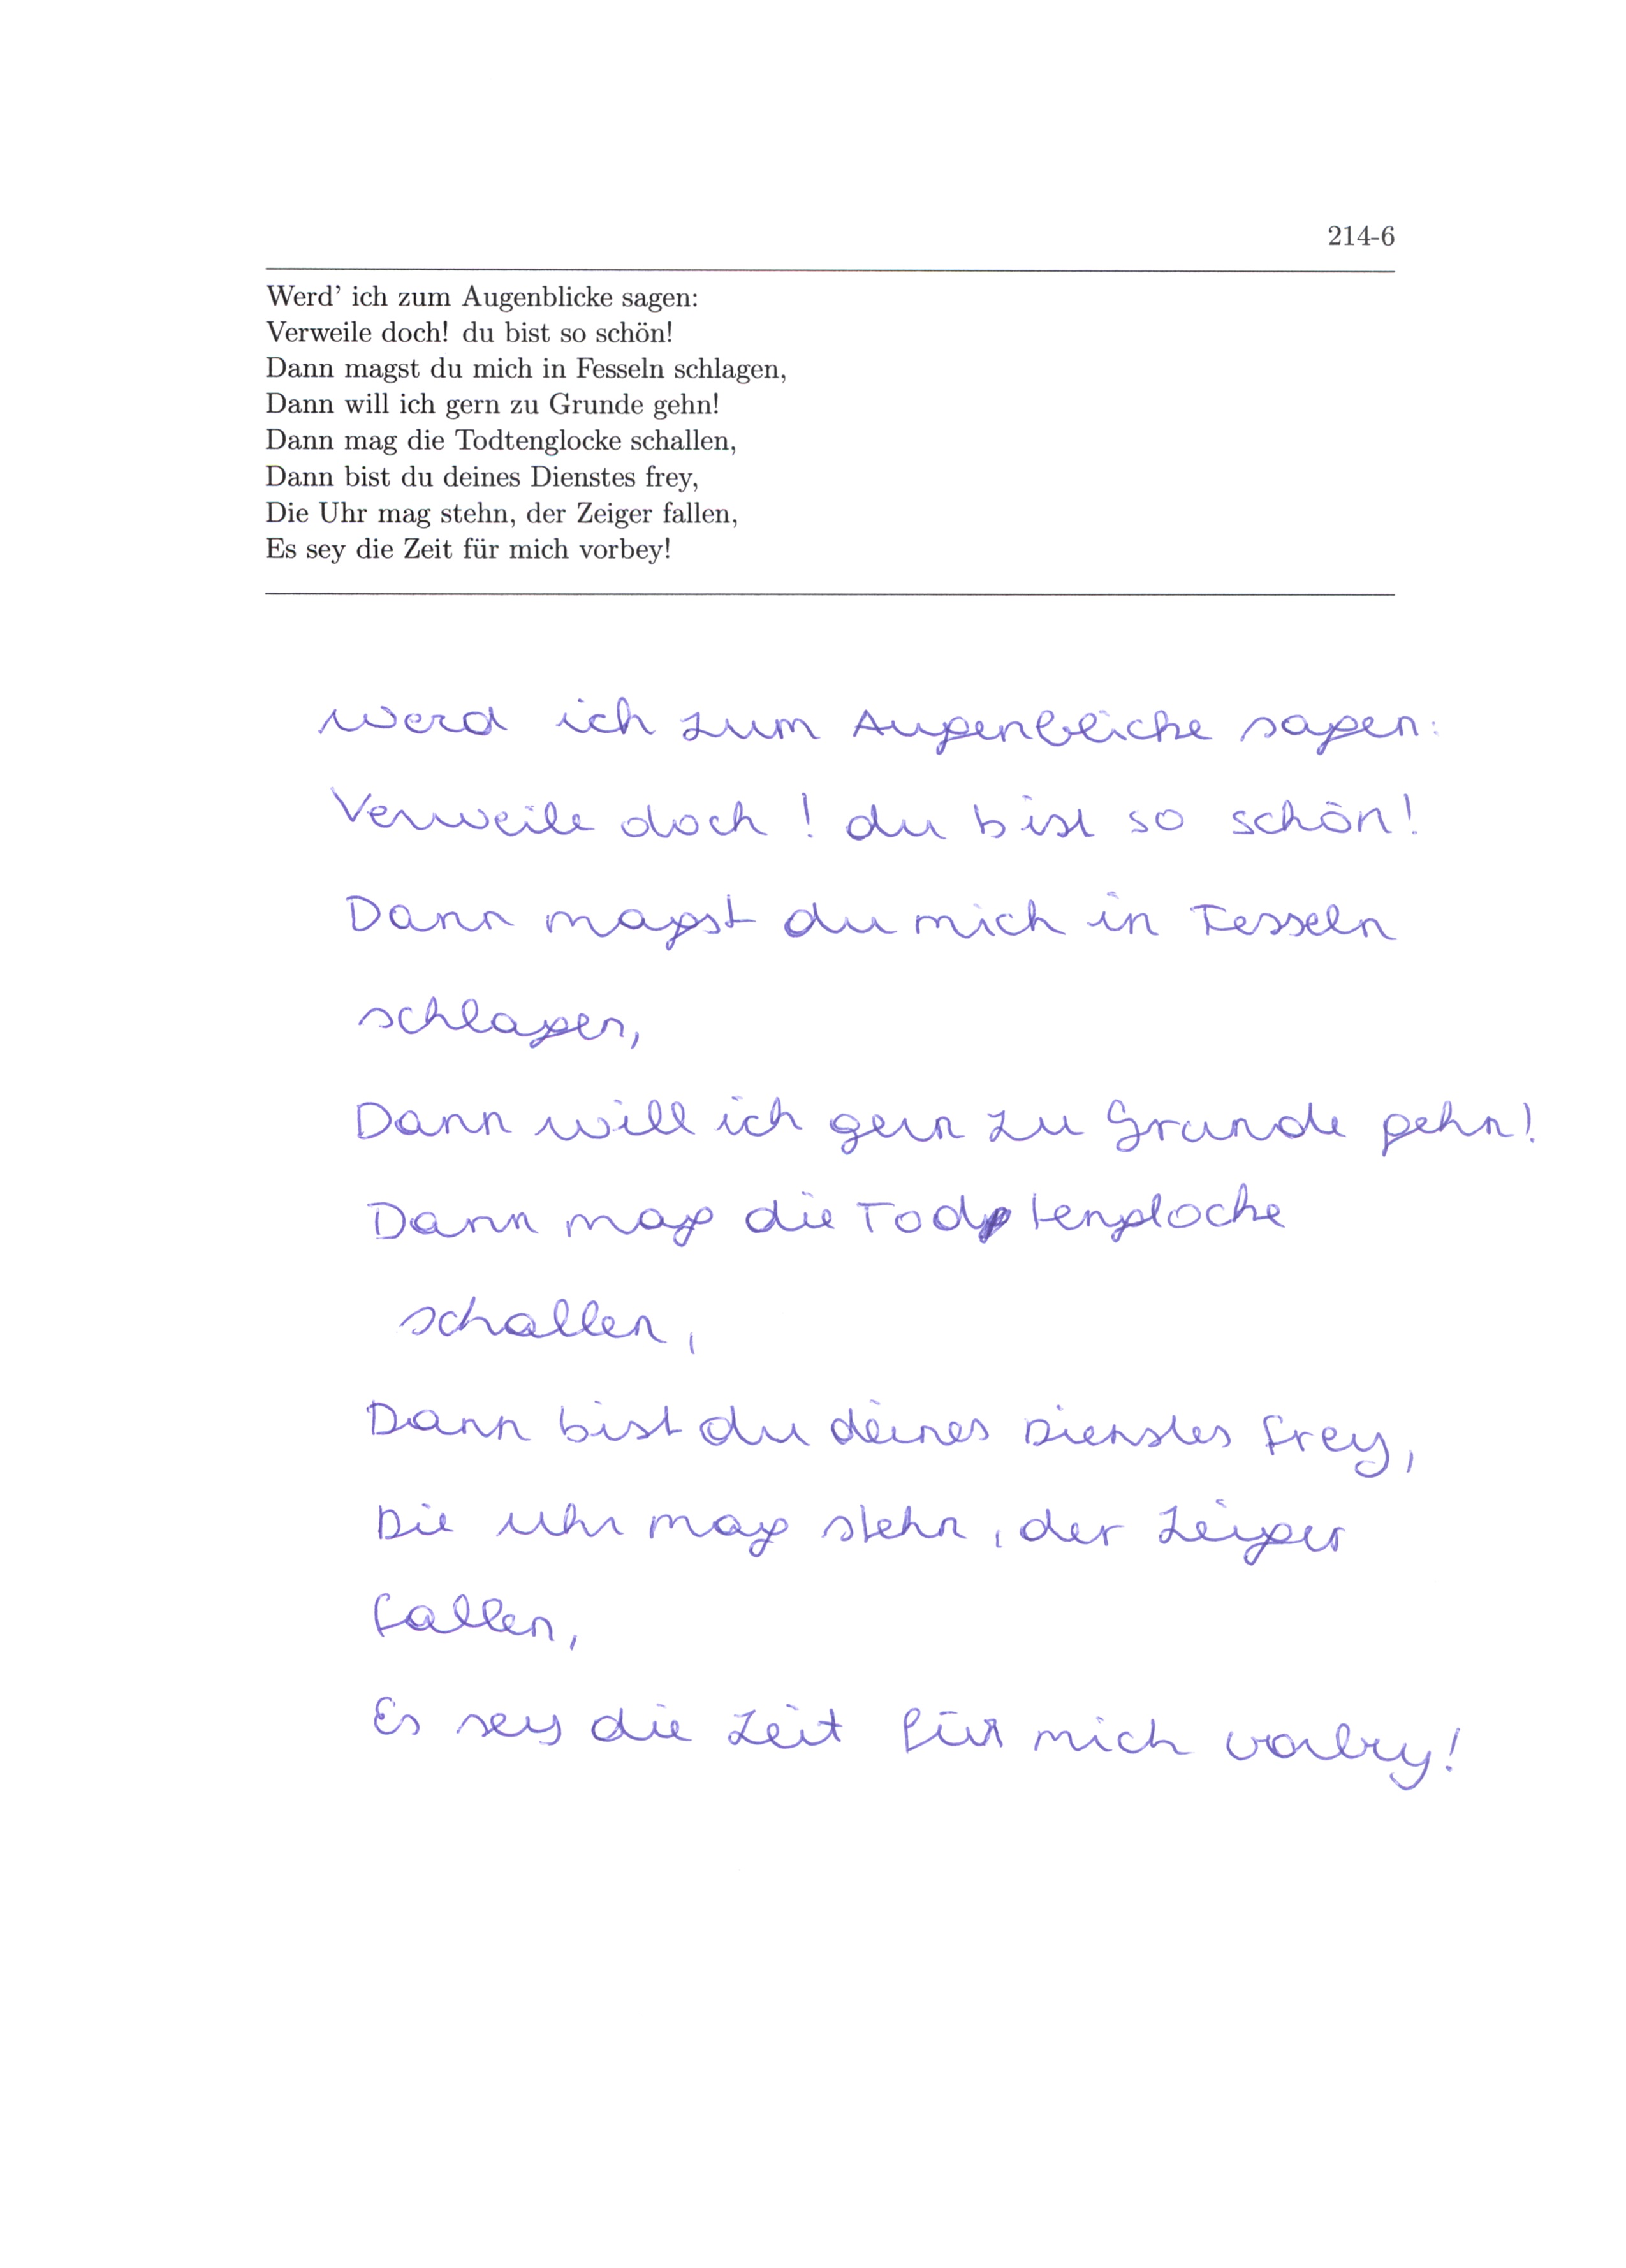 214-6
Werd' ich zum Augenblicke sagen:
Verweile doch! du bist so schön!
Dann magst du mich in Fesseln schlagen,
Dann will ich gern zu Grunde gehn!
Dann mag die Todtenglocke schallen,
Dann bist du deines Dienstes frey,
Die Uhr mag stehn, der Zeiger fallen,
Es sey die Zeit für mich vorbey!
Werd ich zum Augenblicke sagen:
Verweile doch! du bist so schön!
Dann magst du mich in Fesseln
schlagen,
Dann will ich gern zu Grunde gehn!
Dann mag die Todtenglocke
schallen,
Dann bist du deines Dienstes frey,
Die Uhr mag stehn, der Zeiger
fallen,
Es sey die Zeit für mich vorbey!